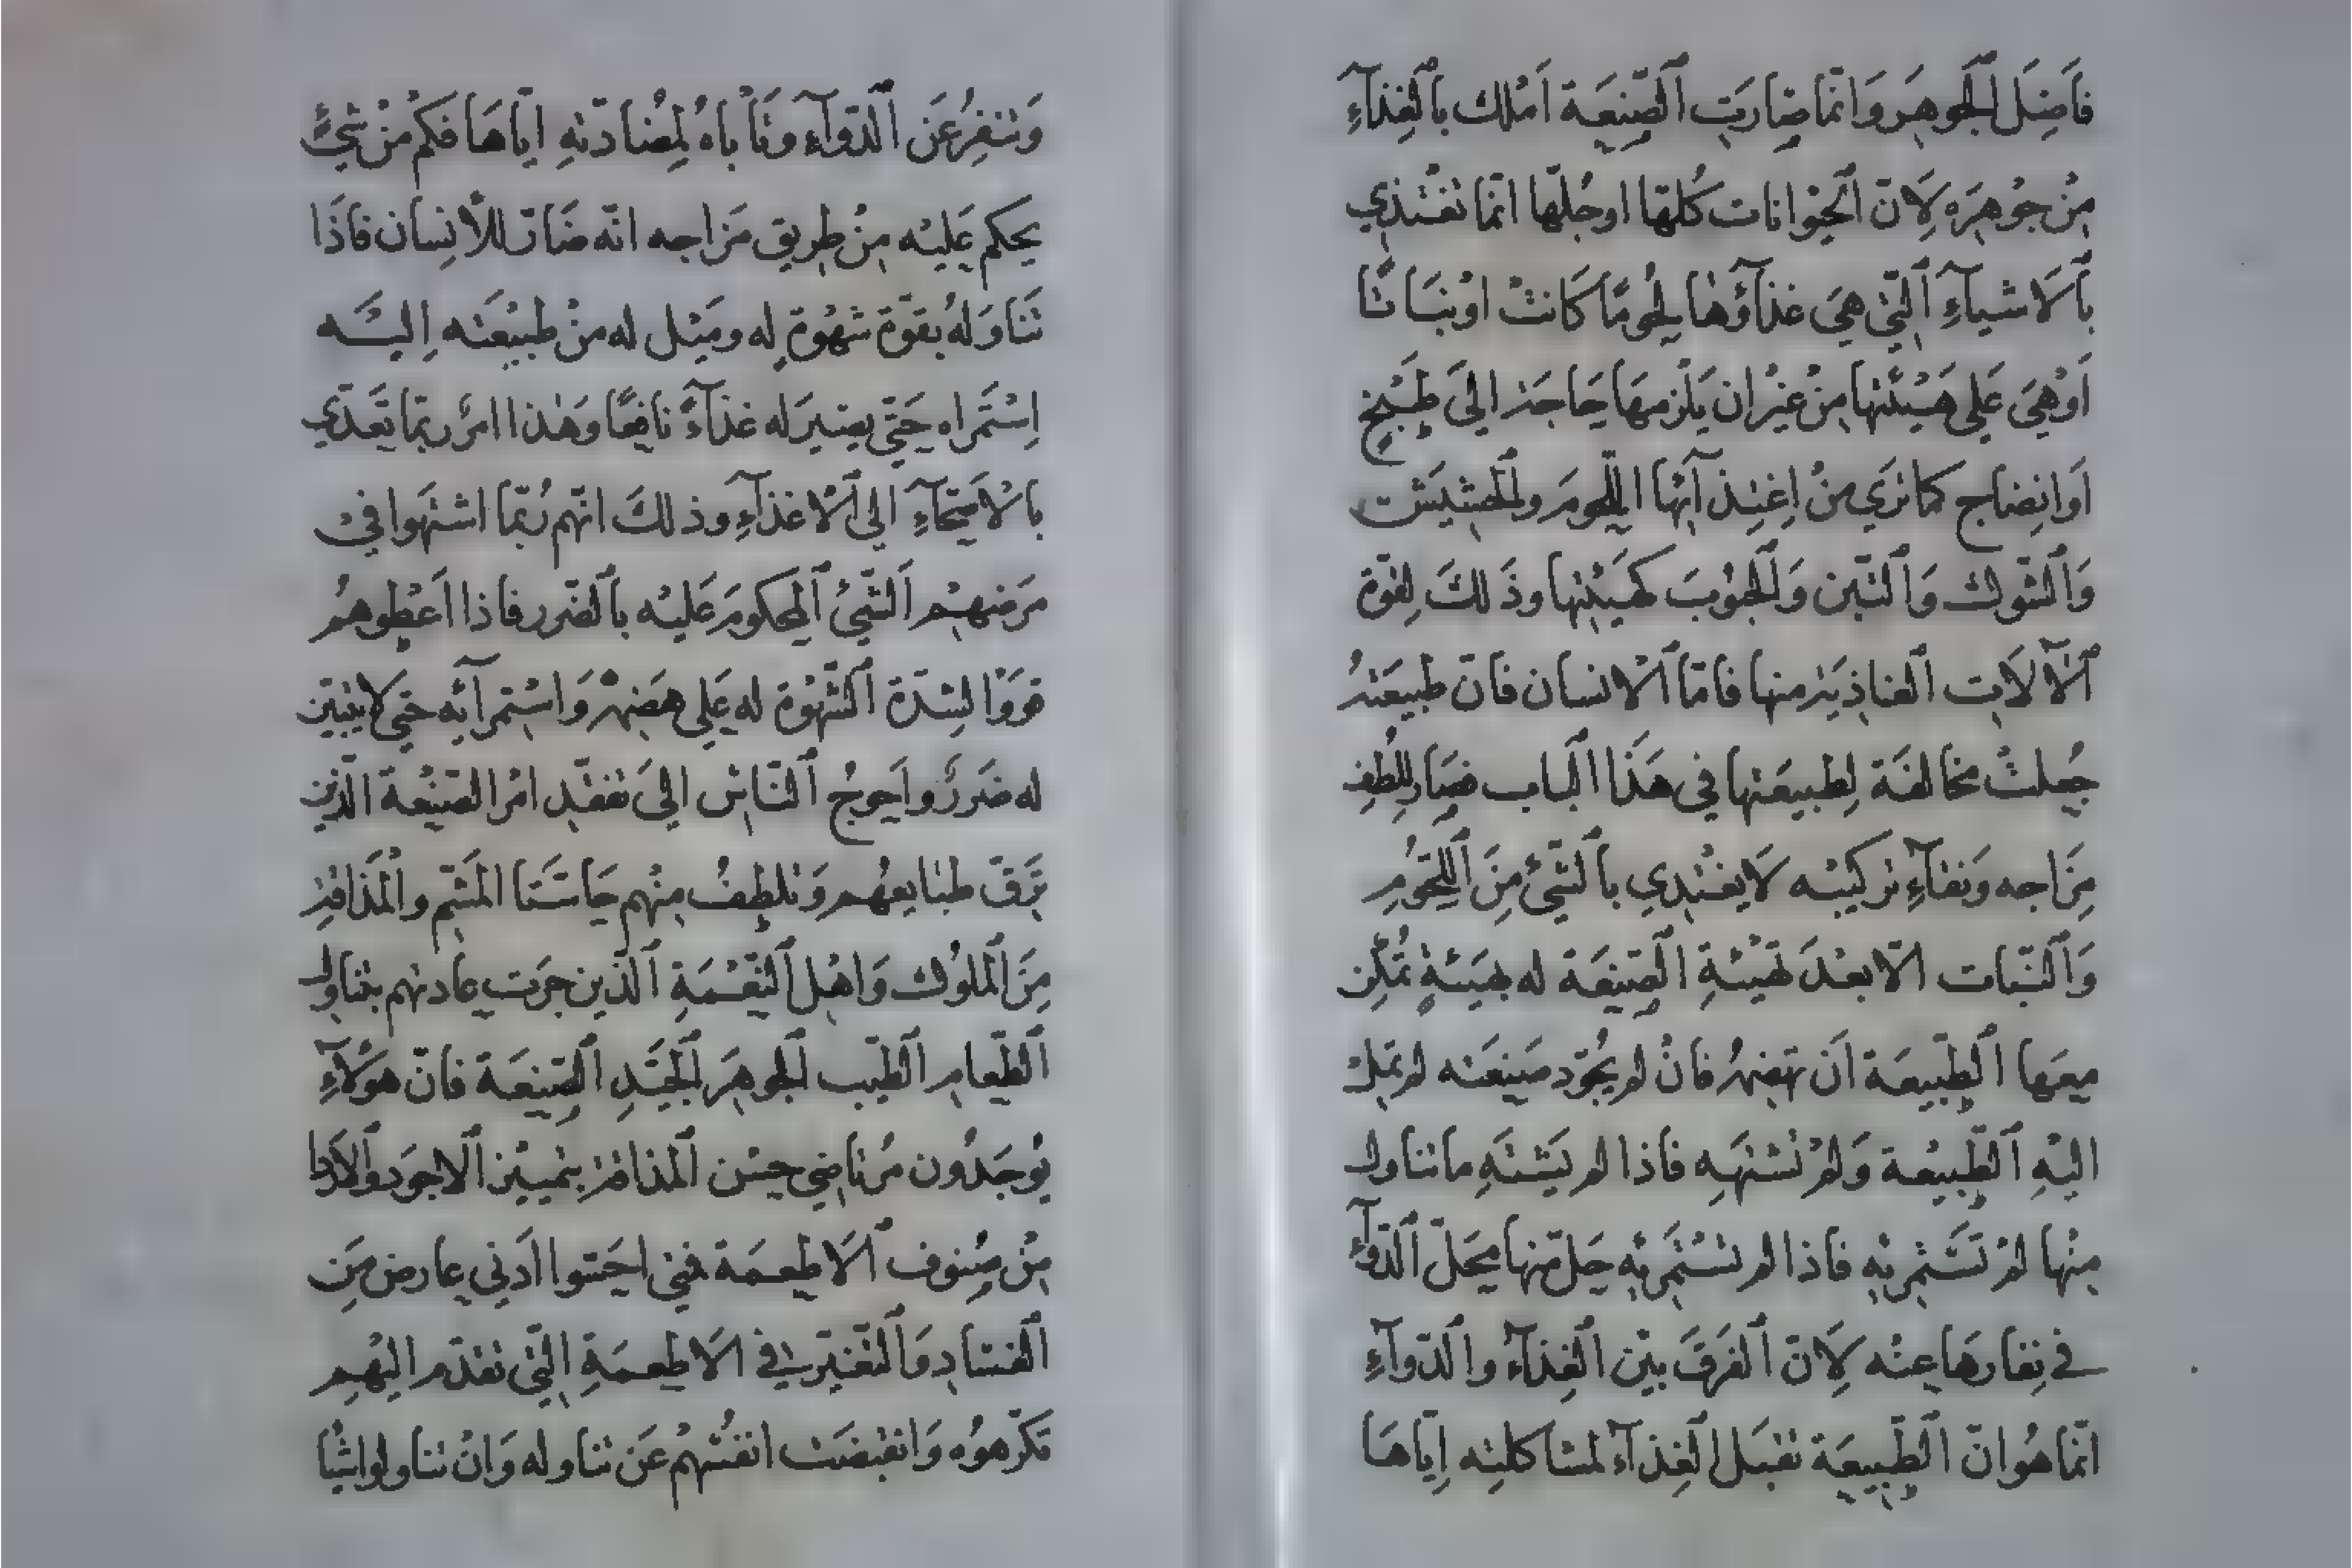 فَاضِلَ الجَوهَر وَانّما صَارَت الصّنِعَة اَملك بالغِذآءِ
مِنْ جَوْهَرَه لِاَنّ الحيْوانات كُلّها اوجُلّها انّما تغْتذي
بالاَشيآءِ الّتي هيَ غذآؤُها لحُومًا كَانتْ اوْ نبَاتًا
اَوْهيَ عَلي هَيْئتها مِنْ غيْران يَلْزمهَا حَاجَة الىَ طَبْخ
اَوانِضاج كما نرَي منْ اِغتِذآئِها اللّحومَ والحَشيَش
وَالشّوك وَالتّبن وَالحُبوُبَ كهَيْئتها وذَ لكَ لِقوّة
الآلاَت الغاذِيَة منها فامّا الاْنسان فانّ طبيعَتهُ
جُعلتْ مخالفَة لِطبيعَتها في هَذا الباب فصَار للُطفِ
مِزَاجه وَنقآءِ تركيْبه لاَ يغْتدِي بالشّيْ مِنَ اللّحوُمِ
وَالنّبات الاّ بعْدَ تهَيْئةِ الصّنِعَة له بهَيْئةٍ تُمكّن
معَها الطّبيعَة اَن تهضِمهُ فانْ لم يُجوّد صَنِعَته لم تَمِل
اليْهِ الطّبيْعة وَلمْ تشْتهَه فاذا لم يَشتهَ ما تناول
مِنْها لمْ تسَتَمْريْه فاذا لم تسْتَمْريْه حَلّ منها مَحَلّ الدّوآءِ
في نِفارهَا عنْه لِاَنّ الفَرقَ بيْن الغِذآءِ والدّوآءِ
انّما هُوانّ الطّبيعَة تقبَل الغِذآءَ لمشاكلتِه اِيّاهَا
وَتنفِرُ عَن الدّوآء وَتأْ باهُ لمِضُادّتهِ ايّاهَا فكَمْ مِنْ شَيْءٍ
يحكم عَليْه مِنْ طريق مَزاجه انّه ضَارّ للاْنِسان فاذَا
تَناوَلهُ بقوّة شهْوة له ومَيْل له منْ طبيْعَته اِليْه
اِسْتَمَراه حَتّي يصيَر له غذآءً نافِعًا وَهٰذا امرٌ ربّما تعَدّي
بالاْصَحّآءِ الي الاْغذآءِ وذ لكَ انّهم رُبّما اشتَهَوا في
مَرَضهمْ الشّيْ المحكومَ عَليْه بالضّرر فاذا اَعْطوهمُ
قوَوْا لشِدّة الشّهْوة له عَلي هَضمهْ وَاسْتمرآئه حَتي لا يتبيّن
له ضَررٌ واَحوجُ النّاسْ اليَ تفقّد امْر الصّنِعْة الّذين
تَرقّ طبَايعهُم وَتلطِفُ مِنْهم حَاسّتَا المَشّم والمَذاقة
مِنَ الملوُك وَاهْل النّعْمَةِ الذّين جرَت عادتهم بتناول
الطّعام الطّيب الجوهَر الجيّدِ الصّنِعَة فانّ هؤلآءِ
يُوجَدُون مُرتاضي حِسّ المذاقة بتمييْز الاجوَد والاَردا
منْ صنوف الاَطعمَة فمتي احَسّوا اَدني عارض مَِن
الفسَاد وَالتّغيّر في الاَطعمَةِ الّتي تقدّم اليْهِم
تكرّهوُه وَانقبضَت انفسُهمْ عَن تناوله وَانْ تناولواشْيا